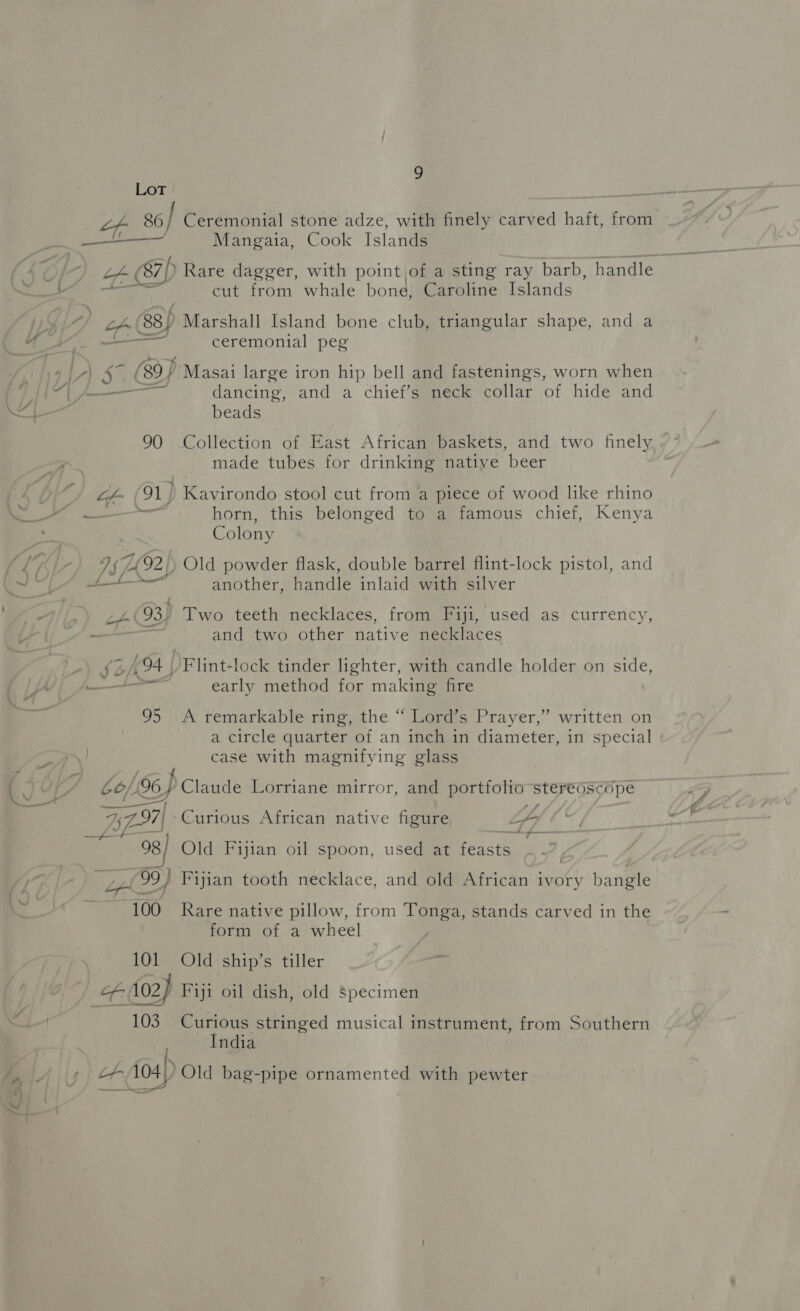 9
Lot
86 Ceremonial stone adze, with finely carved haft, from
Mangaia, Cook Islands
87 Rare dagger, with point of a sting ray barb, handle
cut from whale bone, Caroline Islands
88 Marshall Island bone club, triangular shape, and a
ceremonial peg
89 Masai large iron hip bell and fastenings, worn when
dancing, and a chief's neck collar of hide and
beads
90 Collection of East African baskets, and two finely
made tubes for drinking native beer
91 Kavirondo stool cut from a piece of wood like rhino
horn, this belonged to a famous chief, Kenya
Colony
92 Old powder flask, double barrel flint-lock pistol, and
another, handle inlaid with silver
93 Two teeth necklaces, from Fiji, used as currency,
and two other native necklaces
94 Flint-lock tinder lighter, with candle holder on side,
early method for making fire
95 A remarkable ring, the “ Lord's Prayer,” written on
a circle quarter of an inch in diameter, in special
case with magnifying glass
96 Claude Lorriane mirror, and portfolio stereoscope
97 Curious African native figure
98 Old Fijian oil spoon, used at feasts
99 Fijian tooth necklace, and old African ivory bangle
100 Rare native pillow, from Tonga, stands carved in the
form of a wheel
101 Old ship's tiller
102 Fiji oil dish, old specimen
103 Curious stringed musical instrument, from Southern
India
104 Old bag-pipe ornamented with pewter